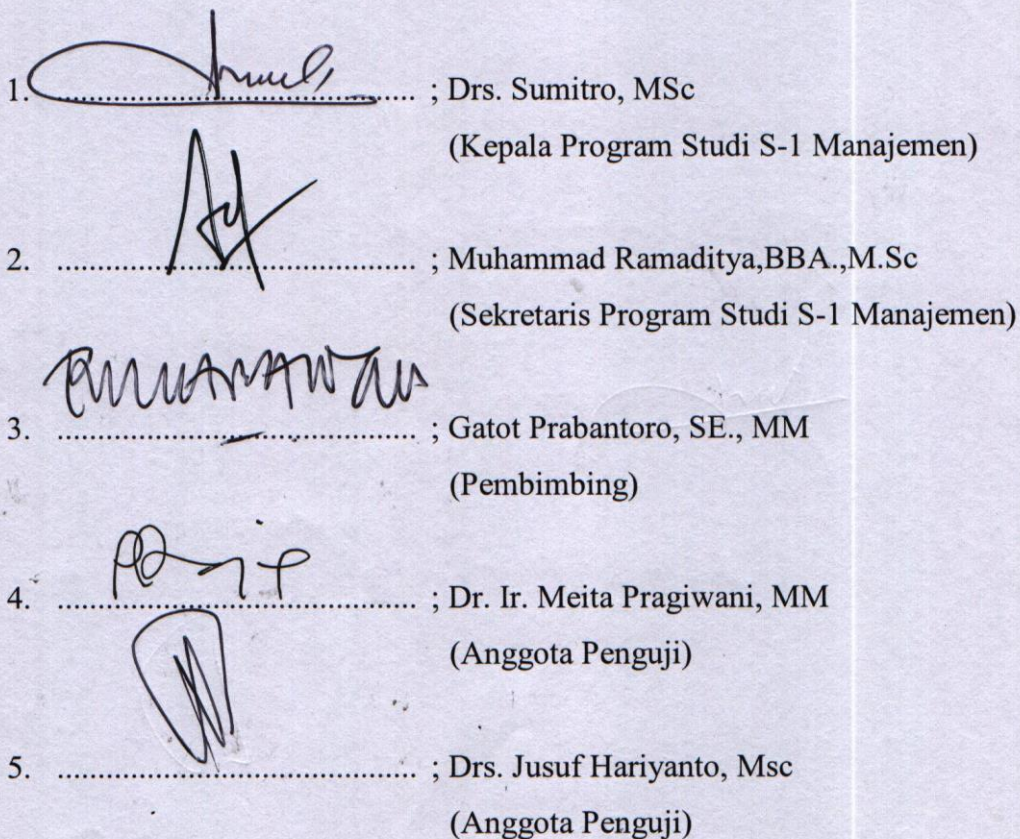 1. ........................................ ; Drs. Sumitro, MSc
(Kepala Program Studi S-1 Manajemen)
2. ........................................ ; Muhammad Ramaditya,BBA.,M.Sc
(Sekretaris Program Studi S-1 Manajemen)
3. ........................................ ; Gatot Prabantoro, SE., MM
(Pembimbing)
4. ........................................ ; Dr. Ir. Meita Pragiwani, MM
(Anggota Penguji)
5. ........................................ ; Drs. Jusuf Hariyanto, Msc
(Anggota Penguji)